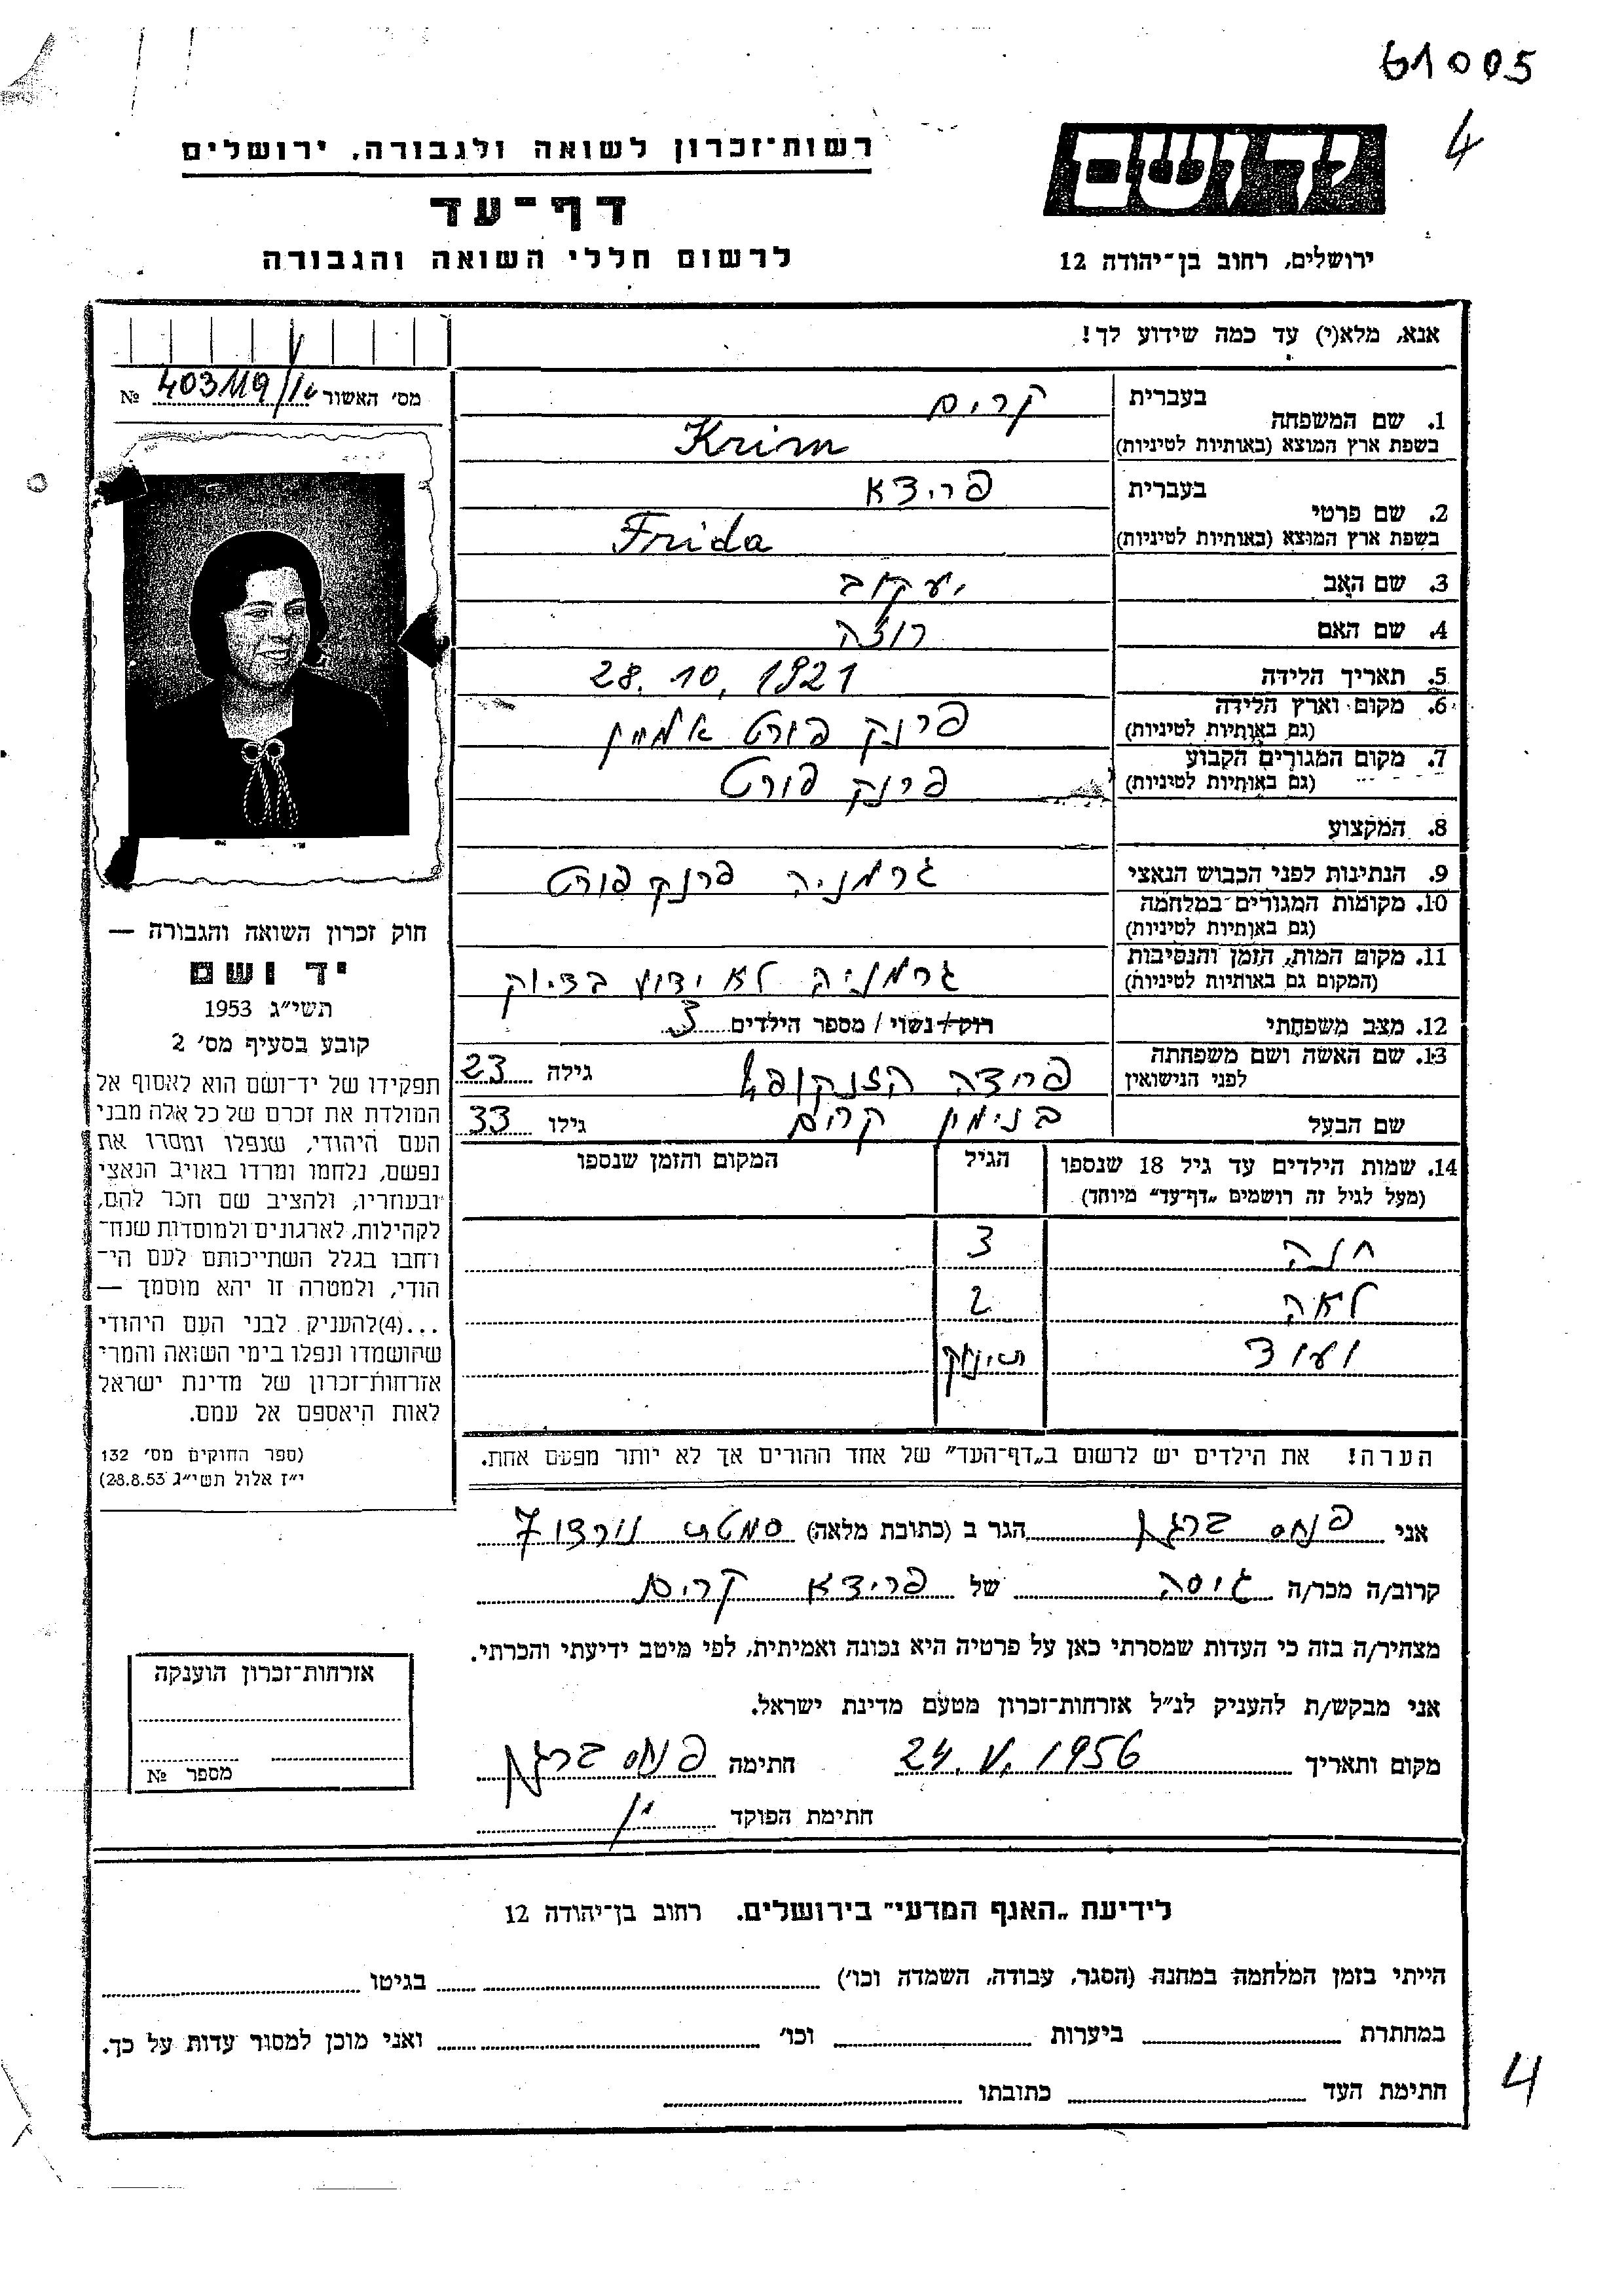 61005
4
יד ושם
רשות־זכרון לשואה ולגבורה, ירושלים
דף־עד
לרשום חללי השואה והגבורה
ירושלים, רחוב בן־יהודה 12
אנא, מלא(י) עד כמה שידוע לך!
מס׳ האשור 403119/16 №
1. שם המשפחה
בעברית קרים
בשפת ארץ המוצא (באותיות לטיניות) Krim
2. שם פרטי
בעברית פרידא
בשפת ארץ המוצא (באותיות לטיניות) Frida
3. שם האב יעקוב
4. שם האם רוזה
5. תאריך הלידה 28. 10, 1921
6. מקום וארץ הלידה
(גם באותיות לטיניות) פרנק פורט
7. מקום המגורים הקבוע
(גם באותיות לטיניות) פרנק פורט
8. המקצוע
9. הנתינות לפני הכבוש הנאצי גרמניה פרנק פורט
10. מקומות המגורים במלחמה
(גם באותיות לטיניות)
11. מקום המות, הזמן והנסיבות
(המקום גם באותיות לטיניות) גרמניה לא ידוע בדיוק
12. מצב משפחתי רוק/נשוי / מספר הילדים 3
13. שם האשה ושם משפחתה
לפני הנישואין פרידה גילה 23
שם הבעל בנימין קרים גילו 33
14. שמות הילדים עד גיל 18 שנספו הגיל המקום והזמן שנספו
(מעל לגיל זה רושמים „דף־עד" מיוחד)
חנה 3
לאה 2
ועוד תינוק
הערה! את הילדים יש לרשום ב„דף־העד" של אחד ההורים אך לא יותר מפעם אחת.
חוק זכרון השואה והגבורה —
יד ושם
תשי״ג 1953
קובע בסעיף מס׳ 2
תפקידו של יד־ושם הוא לאסוף אל
המולדת את זכרם של כל אלה מבני
העם היהודי, שנפלו ומסרו את
נפשם, נלחמו ומרדו באויב הנאצי
ובעוזריו, ולהציב שם וזכר להם,
לקהילות, לארגונים ולמוסדות שנח־
רחבו בגלל השתייכותם לעם הי־
הודי, ולמטרה זו יהא מוסמך —
...(4)להעניק לבני העם היהודי
שהושמדו ונפלו בימי השואה והמרי
אזרחות־זכרון של מדינת ישראל
לאות היאספם אל עמם.
(ספר החוקים מס׳ 132
י״ז אלול תשי״ג 28.8.53)
אני פנחס ברגמן הגר ב (כתובת מלאה) 7
קרוב/ה מכר/ה גיסה של פרידא קרים
מצהיר/ה בזה כי העדות שמסרתי כאן על פרטיה היא נכונה ואמיתית, לפי מיטב ידיעתי והכרתי.
אני מבקש/ת להעניק לנ״ל אזרחות־זכרון מטעם מדינת ישראל.
מקום ותאריך 24. V. 1956 חתימה פנחס ברגמן
חתימת הפוקד
אזרחות־זכרון הוענקה
מספר №
לידיעת „האגף המדעי" בירושלים. רחוב בן־יהודה 12
הייתי בזמן המלחמה במחנה (הסגר, עבודה, השמדה וכו׳) בגיטו
במחתרת ביערות וכו׳ ואני מוכן למסור עדות על כך.
חתימת העד כתובתו
4